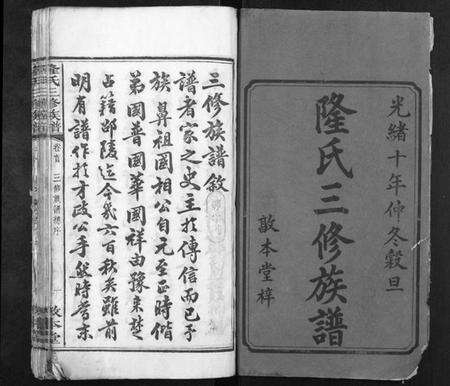 光緒十年仲冬穀旦
隆氏三修族譜
敦本堂梓
三修族譜敘
譜者家之史主於傳信而已予
族鼻祖國相公自元至正時偕
弟國晉國華國祥由豫來楚
占籍邵陵迄今幾六百秋矣雖前
明有譜作於才政公手然時當末
隆氏三修族譜
卷首
敦本堂